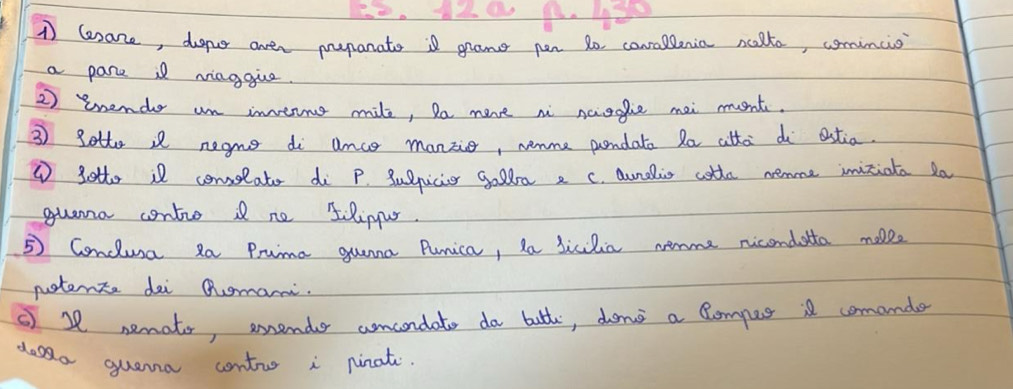 ES. 12a p. 430
1) Cesare, dopo aver preparato il grano per la cavalleria scelta, cominciò
a pare il viaggio.
2) Essendo un inverno mite, la neve si scioglie nei monti.
3) Sotto il regno di Anco Marzio, venne fondata la città di Ostia.
4) Sotto il consolato di P. Sulpicio Galba e C. Aurelio Cotta venne iniziata la
guerra contro il re Filippo.
5) Conclusa la Prima guerra Punica, la Sicilia venne ricondotta nelle
potenze dei Romani.
6) Il senato, essendo concordato da tutti, donò a Pompeo il comando
della guerra contro i pirati.